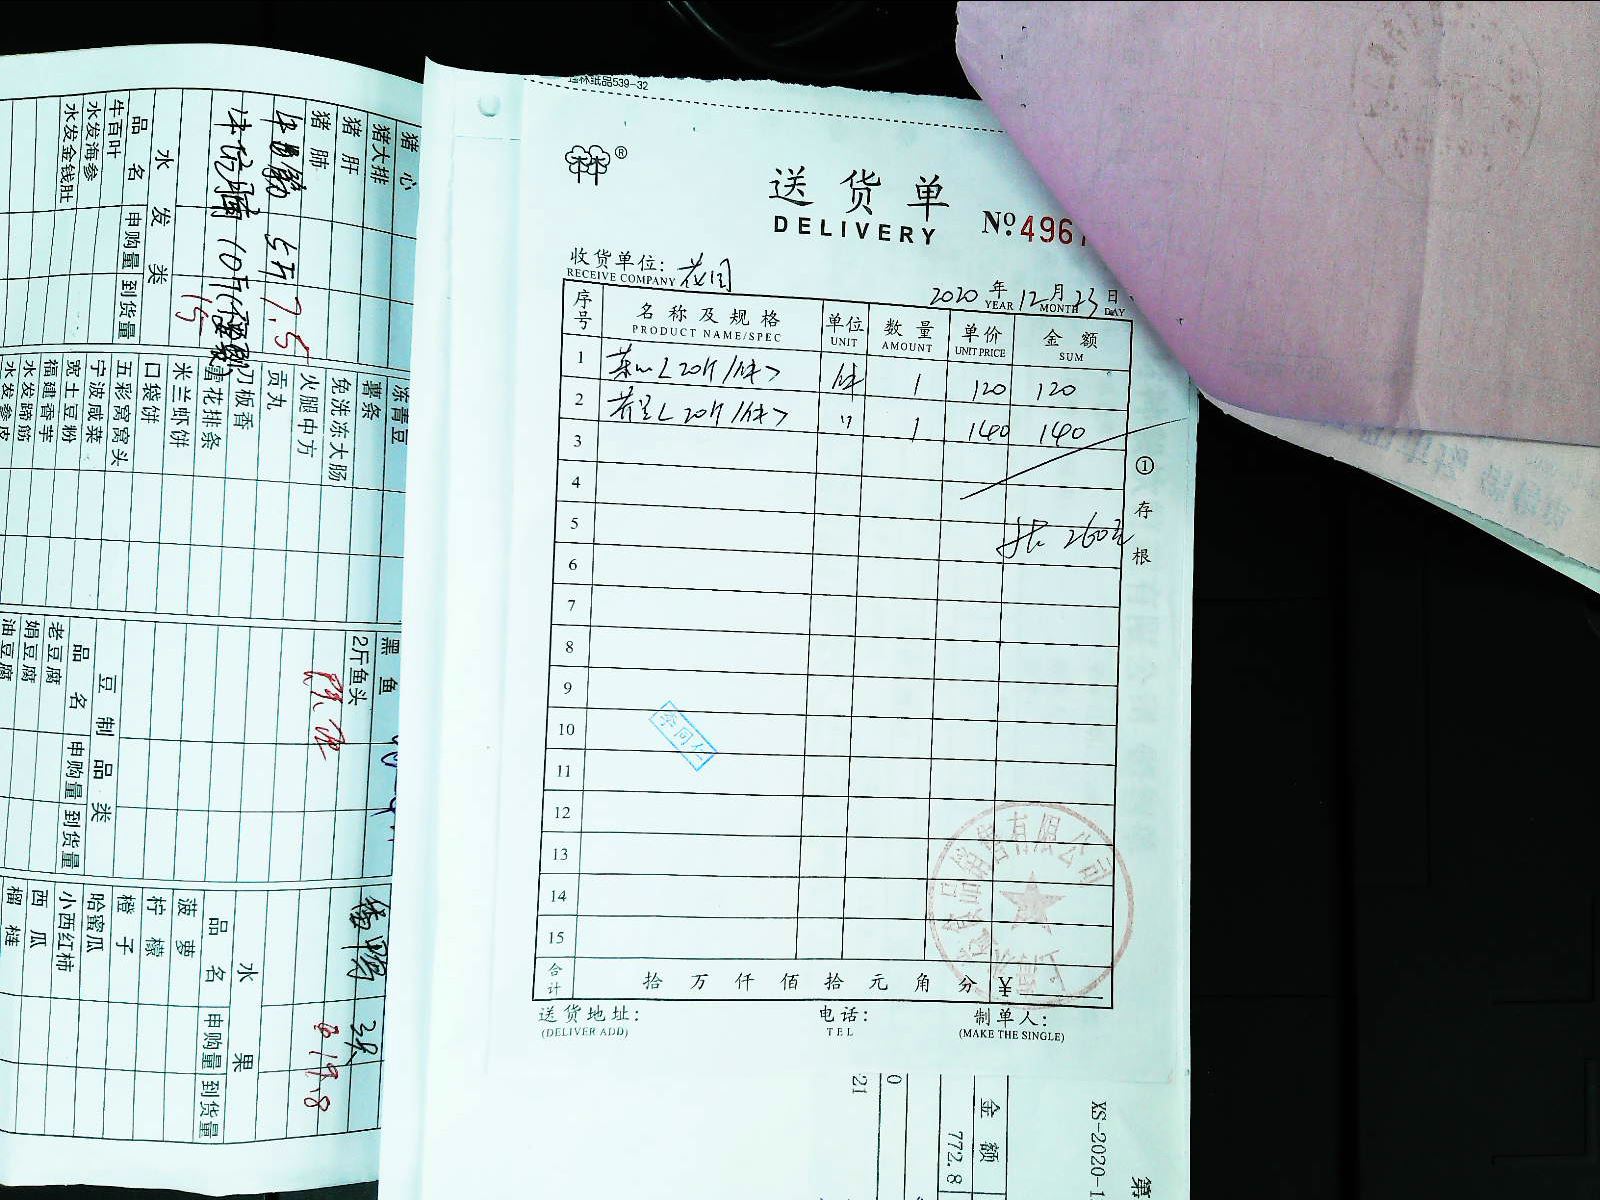 猪心
猪大排
猪肝
猪肺
5斤 7.5
10斤
15
水发类
品名 申购量 到货量
牛百叶
水发海参
水发金钱肚
冻青豆
薯条
免洗冻大肠
火腿中方
贡丸
刀板香
雪花排条
米兰虾饼
口袋饼
五彩窝窝头
宁波咸菜
宽土豆粉
福建香芋
水发蹄筋
水发参皮
黑鱼
2斤鱼头
豆制品类
品名 申购量 到货量
老豆腐
娟豆腐
油豆腐
水果
品名 申购量 到货量
菠萝
柠檬
橙子
哈蜜瓜
小西红柿
西瓜
榴梿
林纸品539-32
®
送货单
DELIVERY
№ 4961
收货单位: 花园
RECEIVE COMPANY
2020 年 12 月 23 日
YEAR MONTH DAY
序号 名称及规格 单位 数量 单价 金额
PRODUCT NAME/SPEC UNIT AMOUNT UNIT PRICE SUM
1 20斤/件 件 1 120 120
2 20斤/件 〃 1 140 140
3
4
5 共 260元
6
7
8
9
10
11
12
13
14
15
①存根
李同仁
食品销售有限公司
合计 拾 万 仟 佰 拾 元 角 分 ¥
送货地址: 电话: 制单人:
(DELIVER ADD) TEL (MAKE THE SINGLE)
21
0
金额
772.8
XS-2020-1
第